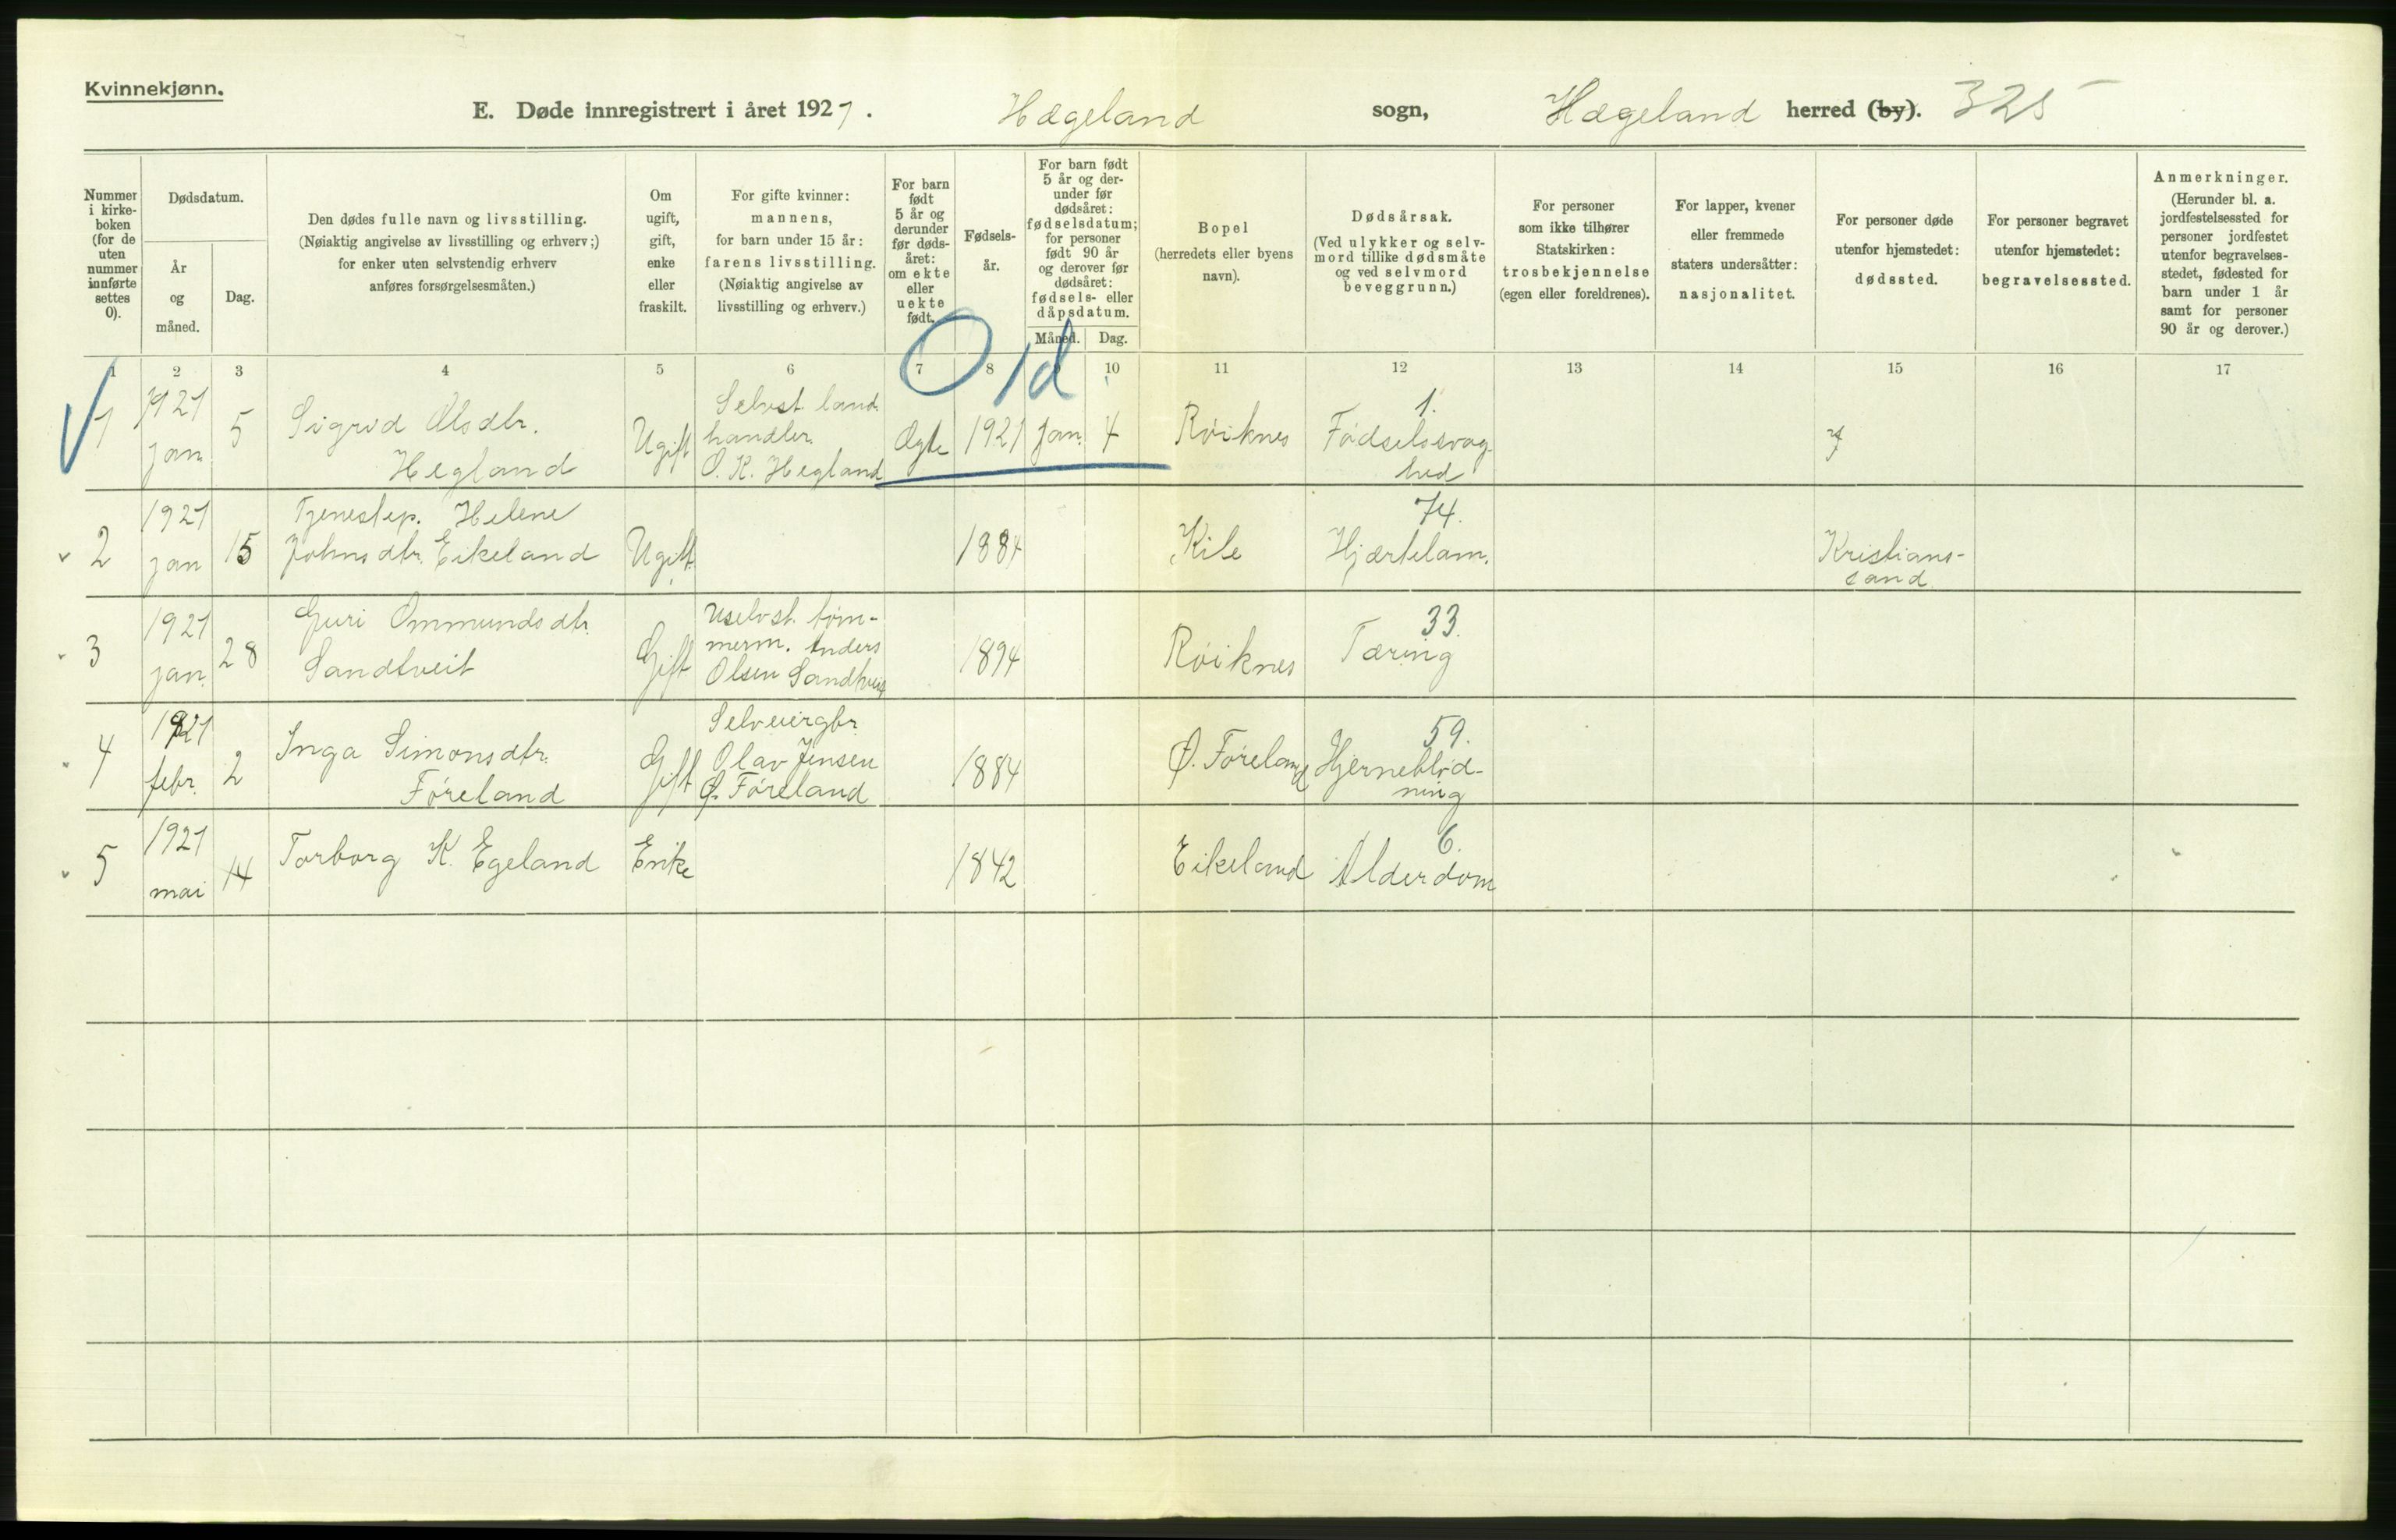 Kvinnekjønn.
E. Døde innregistrert i året 1921. Hægeland sogn, Hægeland herred (by). 325
Nummer i kirke- boken (for de uten nummer innførte settes 0).
Dødsdatum.
År og måned.
Dag.
Den dødes fulle navn og livsstilling.
(Nøiaktig angivelse av livsstilling og erhverv;)
for enker uten selvstendig erhverv
anføres forsørgelsesmåten.)
Om ugift, gift, enke eller fraskilt.
For gifte kvinner:
mannens,
for barn under 15 år:
farens livsstilling.
(Nøiaktig angivelse av
livsstilling og erhverv.)
For barn født 5 år og derunder før døds- året: om ekte eller uekte født.
Fødsels- år.
For barn født 5 år og der- under før dødsåret: fødselsdatum; for personer født 90 år og derover før dødsåret: fødsels- eller dåpsdatum.
Måned.
Dag.
Bopel
(herredets eller byens
navn).
Dødsårsak.
(Ved ulykker og selv-
mord tillike dødsmåte
og ved selvmord
beveggrunn.)
For personer
som ikke tilhører
Statskirken:
trosbekjennelse
(egen eller foreldrenes).
For lapper, kvener
eller fremmede
staters undersåtter:
nasjonalitet.
For personer døde
utenfor hjemstedet:
dødssted.
For personer begravet
utenfor hjemstedet:
begravelsessted.
Anmerkninger.
(Herunder bl. a.
jordfestelsessted for
personer jordfestet
utenfor begravelses-
stedet, fødested for
barn under 1 år
samt for personer
90 år og derover.)
1 2 3 4 5 6 7 8 10 11 12 13 14 15 16 17
O 1d
1 1921 jan 5 Sigrid Olsdtr. Hegland Ugift Selvst. land handler O. K. Hegland Ægte 1921 jan. 4 Røiknes 1. Fødselssvag- hed
2 1921 jan 15 Tjenestep. Helene Johnsdtr. Eikeland Ugift 1884 Kile 74. Hjærtelam. Kristians- sand
3 1921 jan. 28 Guri Ommundsdtr. Sandtveit Gift Uselvst. tøm- merm. Anders Olsen Sandtveit 1894 Røiknes 33. Tæring
4 1921 febr. 2 Inga Simonsdtr. Føreland Gift Selveiergbr. Olav Jensen Ø. Føreland 1884 Ø. Føreland 59. Hjerneblød- ning
5 1921 mai 14 Torborg K. Egeland Enke 1842 Eikeland 6. Alderdom